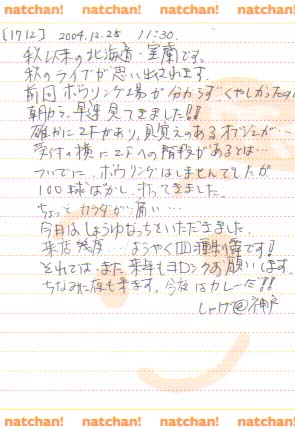 natchan! natchan! natchan! natchan!
[1712] 2004.12.25 11:30.
秋以来の北海道・室蘭です。
秋のライブが思い出されます。
前回ボウリング場が分からず、くやしかったの
朝から、早速見てきました!!
確かに2Fがあり、見覚えのあるオブジェが…
受付の横に2Fへの階段があるとは…
ついでに、ボウリングはしませんでしたが
100球ばかし、打ってきました。
ちょっとカラダが痛い…
今日はしょうゆなっちをいただきました。
来店幾度…ようやく四種制覇です!
それでは、また来年もヨロシクお願いします。
ちなみに夜も来ます。今夜はカレーだ!!
しゃけ@神戸
natchan! natchan! natchan! natchan!